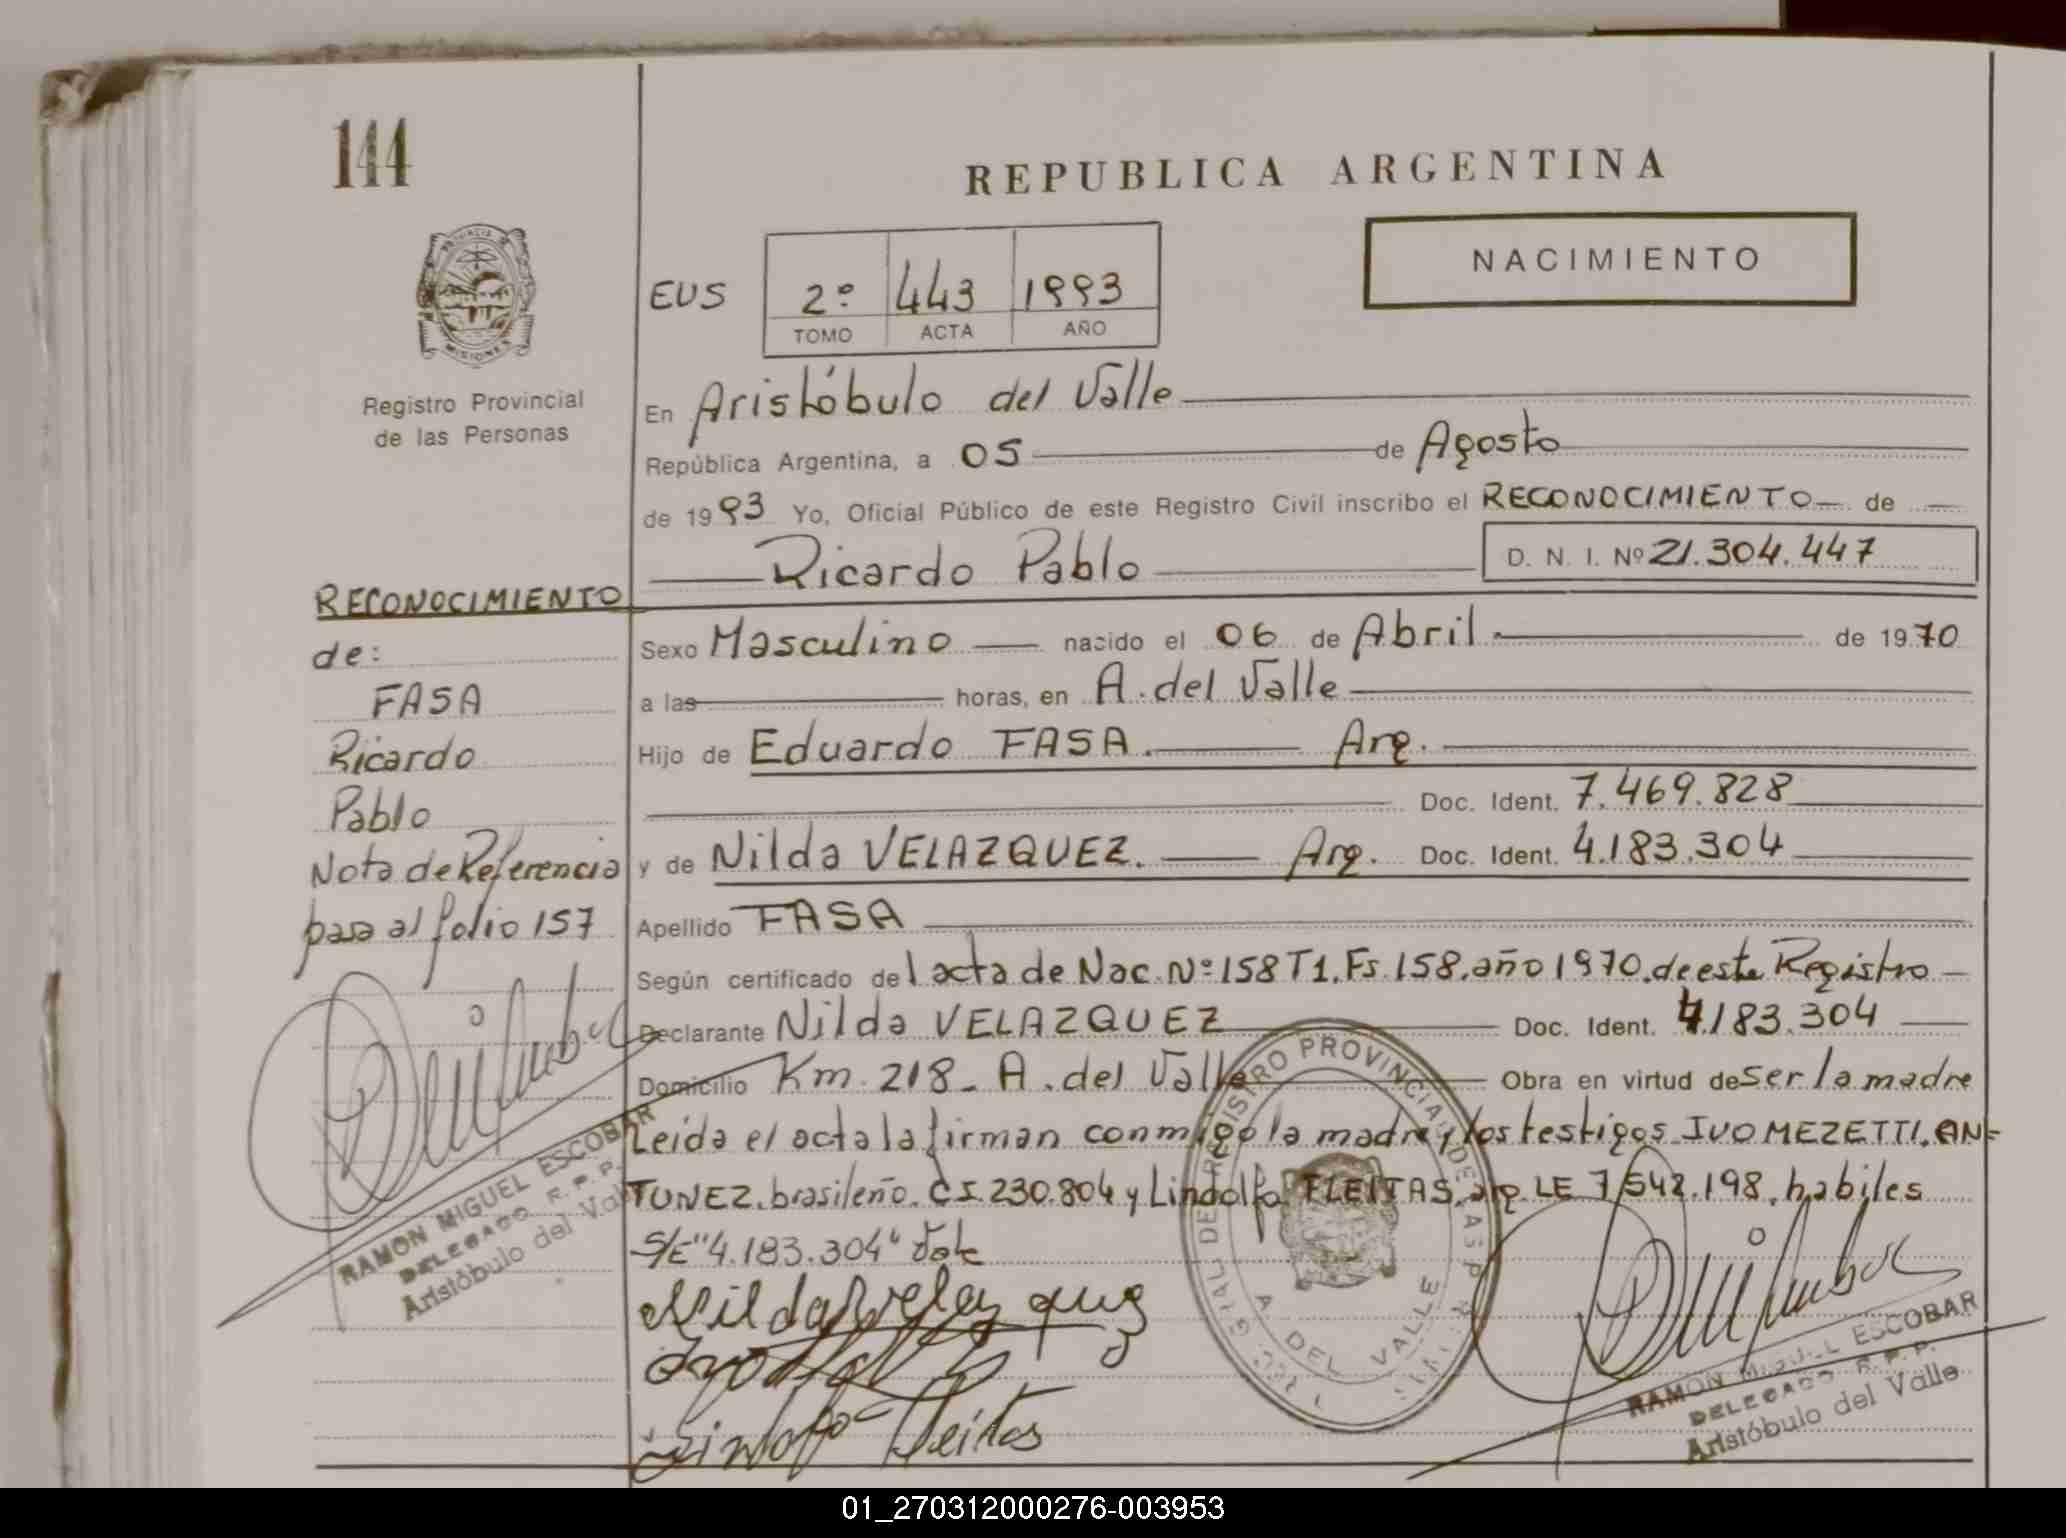 144
REPUBLICA ARGENTINA
NACIMIENTO
PROVINCIA DE
MISIONES
Registro Provincial
de las Personas
EUS
2º 443 1993
TOMO ACTA AÑO
En Aristóbulo del Valle
República Argentina, a 05 de Agosto
de 1993 Yo, Oficial Público de este Registro Civil inscribo el RECONOCIMIENTO de
Ricardo Pablo D. N. I. Nº 21.304.447
RECONOCIMIENTO
de:
FASA
Ricardo
Pablo
Nota de Referencia
pasa al folio 157
RAMON MIGUEL ESCOBAR
DELEGADO R. P. P.
Aristóbulo del Valle
Sexo Masculino nacido el 06 de Abril de 1970
a las horas, en A. del Valle
Hijo de Eduardo FASA. Arg.
Doc. Ident. 7.469.828
y de Nilda VELAZQUEZ. Arg. Doc. Ident. 4.183.304
Apellido FASA
Según certificado del acta de Nac. Nº 158 T1. Fs. 158. año 1970. de este Registro
Declarante Nilda VELAZQUEZ Doc. Ident. 4.183.304
Domicilio Km. 218 - A. del Valle Obra en virtud de ser la madre
Leída el acta la firman conmigo la madre y los testigos IVO MEZETTI. AN=
TUNEZ. brasileño. CI. 230.804 y Lindolfo FLEITAS. arg. LE 7.542.198. habiles
S/E "4.183.304" Vale
Nilda Velazquez
Lindolfo Fleitas
REGISTRO PROVINCIAL DE LAS P
A DEL VALLE
RAMON MIGUEL ESCOBAR
DELEGADO R. P. P.
Aristóbulo del Valle
01_270312000276-003953